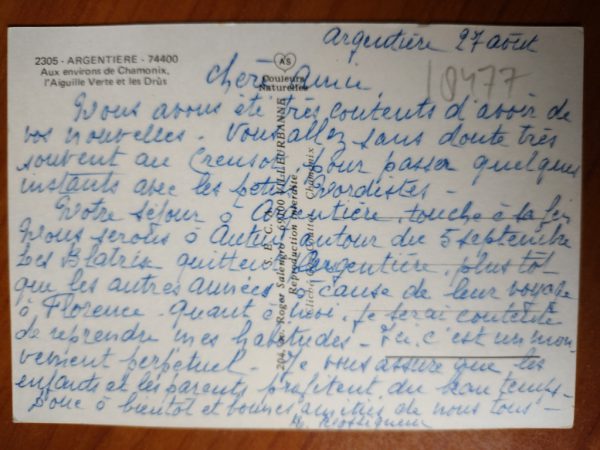 Argentière 27 août
2305 - ARGENTIERE - 74400
Aux environs de Chamonix,
l'Aiguille Verte et les Drûs
AS
Couleurs
Naturelles
18477
Chère Annie,
Nous avons été très contents d'avoir de
vos nouvelles. Vous allez sans doute très
souvent au Creusot pour passer quelques
instants avec les petits
Notre séjour à Argentière, touche à sa fin
Nous serons à Autun autour du 5 septembre
Les Blatrix quittent Argentière, plus tôt
que les autres années à cause de leur voyage
à Florence. Quant à moi, je serai contente
de reprendre mes habitudes. Ici, c'est un mou-
vement perpétuel. Je vous assure que les
enfants et les parents profitent du beau temps.
Donc à bientôt et bonnes amitiés de nous tous -
204, av. Roger Salengro - 69100 VILLEURBANNE
Reproduction interdite
Chamonix